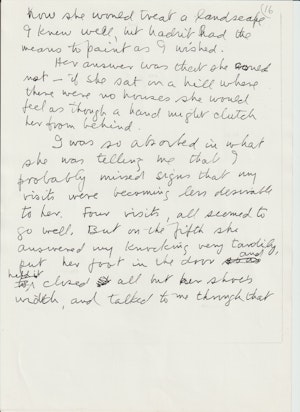 (16
how she would treat a landscape
I knew well, but hadn't had the
means to paint as I wished.
Her answer was that she could
not – if she sat on a hill where
there were no houses she would
feel as though a hand might clutch
her from behind.
I was so absorbed in what
she was telling me that I
probably missed signs that my
visits were becoming less desirable
to her. Four visits, all seemed to
go well. But on the fifth she
answered my knocking very tardily,
put her foot in the door and
held it closed all but her shoes
width, and talked to me through that